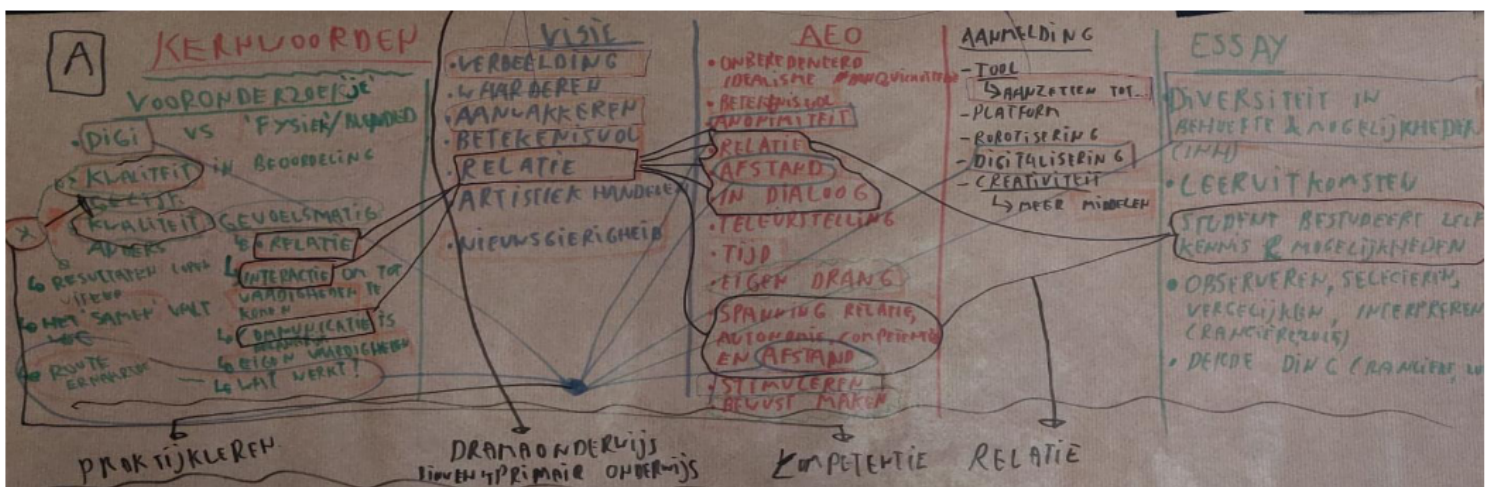 A
KERNWOORDEN
VOORONDERZOEK'JE'
• DIGI VS 'FYSIEK/BLENDED
KWALITEIT IN BEOORDELING
KWALITEIT
ADVERS
↳ RESULTATEN
↳ HET 'SAMEN' VALT
WEG
ROUTE
ERNAARTOE
GEVOELSMATIG
↳ • RELATIE
↳ INTERACTIE OM TOT
VAARDIGHEDEN TE
KOMEN
↳ COMMUNICATIE IS
↳ EIGEN VAARDIGHEDEN
↳ WAT WERKT?
VISIE
• VERBEELDING
• WAARDEREN
• AANWAKKEREN
• BETEKENISVOL
• RELATIE
• ARTISTIEK HANDELEN
• NIEUWSGIERIGHEID
AEO
• ONBEREDENEERD
IDEALISME
• BETEKENISVOL
ANONIMITEIT
• RELATIE
AFSTAND
IN DIALOOG
• TELEURSTELLING
• TIJD
• EIGEN DRANG
• SPANNING RELATIE,
AUTONOMIE COMPETENTIE
EN AFSTAND
• STIMULEREN
BEWUST MAKEN
AANMELDING
- TOOL
↳ AANZETTEN TOT..
- PLATFORM
- ROBOTISERING
- DIGITALISERING
- CREATIVITEIT
↳ MEER MIDDELEN
ESSAY
• DIVERSITEIT IN
BEHOEFTE & MOGELIJKHEDEN
(INH)
• LEERUITKOMSTEN
STUDENT BESTUDEERT ZELF
KENNIS & MOGELIJKHEDEN
• OBSERVEREN, SELECTEREN,
VERGELIJKEN, INTERPREREN
(RANCIERE, 2015)
• DERDE DING (RANCIERE,
PRAKTIJKLEREN
DRAMAONDERWIJS
BINNEN 'T PRIMAIR ONDERWIJS
COMPETENTIE
RELATIE